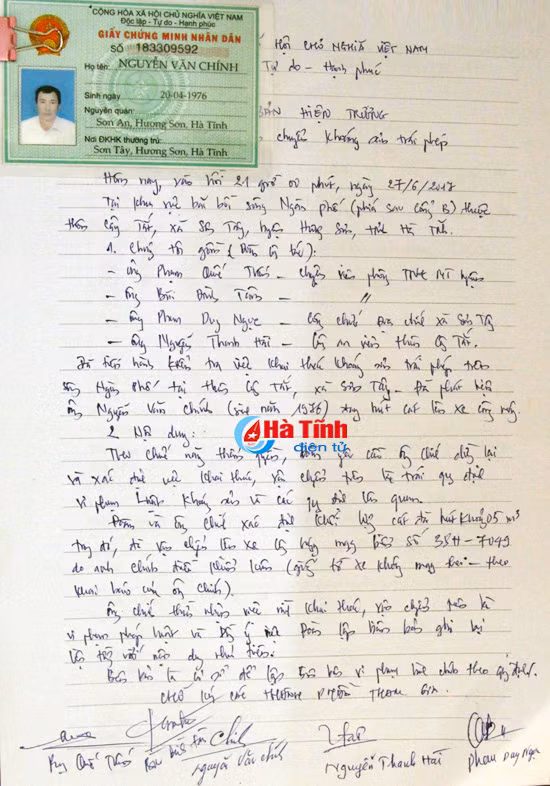 CỘNG HÒA XÃ HỘI CHỦ NGHĨA VIỆT NAM
Độc lập - Tự do - Hạnh phúc
GIẤY CHỨNG MINH NHÂN DÂN
SỐ 183309592
Họ tên: NGUYỄN VĂN CHÍNH
Sinh ngày 20-04-1976
Nguyên quán:
Sơn An, Hương Sơn, Hà Tĩnh
Nơi ĐKHK thường trú:
Sơn Tây, Hương Sơn, Hà Tĩnh
HỘI CHỦ NGHĨA VIỆT NAM
Tự do - Hạnh phúc
BẢN HIỆN TRƯỜNG
chuyển khoáng sản trái phép
Hôm nay, vào hồi 21 giờ 00 phút, ngày 27/6/2017
Tại khu vực bãi bồi sông Ngàn phố (phía sau cổng B) thuộc
thôn Cây Tắt, xã Sơn Tây, huyện Hương Sơn, tỉnh Hà Tĩnh.
1. Chúng tôi gồm
- Ông Phạm Quốc - phòng TNMT
- Ông Bùi Đình - //
- Ông Phan Duy Ngọc - công chức địa chính xã Sơn Tây
- Ông Nguyễn Thanh Hải - Công an viên thôn Cây Tắt.
Đã tiến hành kiểm tra việc khai thác khoáng sản trái phép trên
sông Ngàn Phố tại thôn Cây Tắt, xã Sơn Tây. Đã phát hiện
ông Nguyễn Văn Chính (sinh năm 1976) đang hút cát lên xe
Hà Tĩnh
điện tử
2. Nội dung:
yêu cầu ông Chính dừng lại
và xác định việc khai thác, vận chuyển trên là trái quy định
vi phạm Luật khoáng sản và các quy định liên quan.
Đoàn và ông Chính xác định khối lượng cát đã hút khoảng 05 m³
trong đó, đã vận chuyển lên xe mang biển số 38H-7049
do anh Chính điều khiển (giấy tờ xe không mang theo - theo
khai báo của ông Chính).
Ông Chính thừa nhận việc khai thác, vận chuyển trên là
vi phạm pháp luật và đồng ý Đoàn lập biên bản ghi lại
Biên bản là cơ sở để lập biên bản vi phạm hành chính theo quy định.
CHỮ KÝ CÁC THÀNH PHẦN THAM GIA.
Nguyễn Văn Chính
Nguyễn Thanh Hải
Phan Duy Ngọc